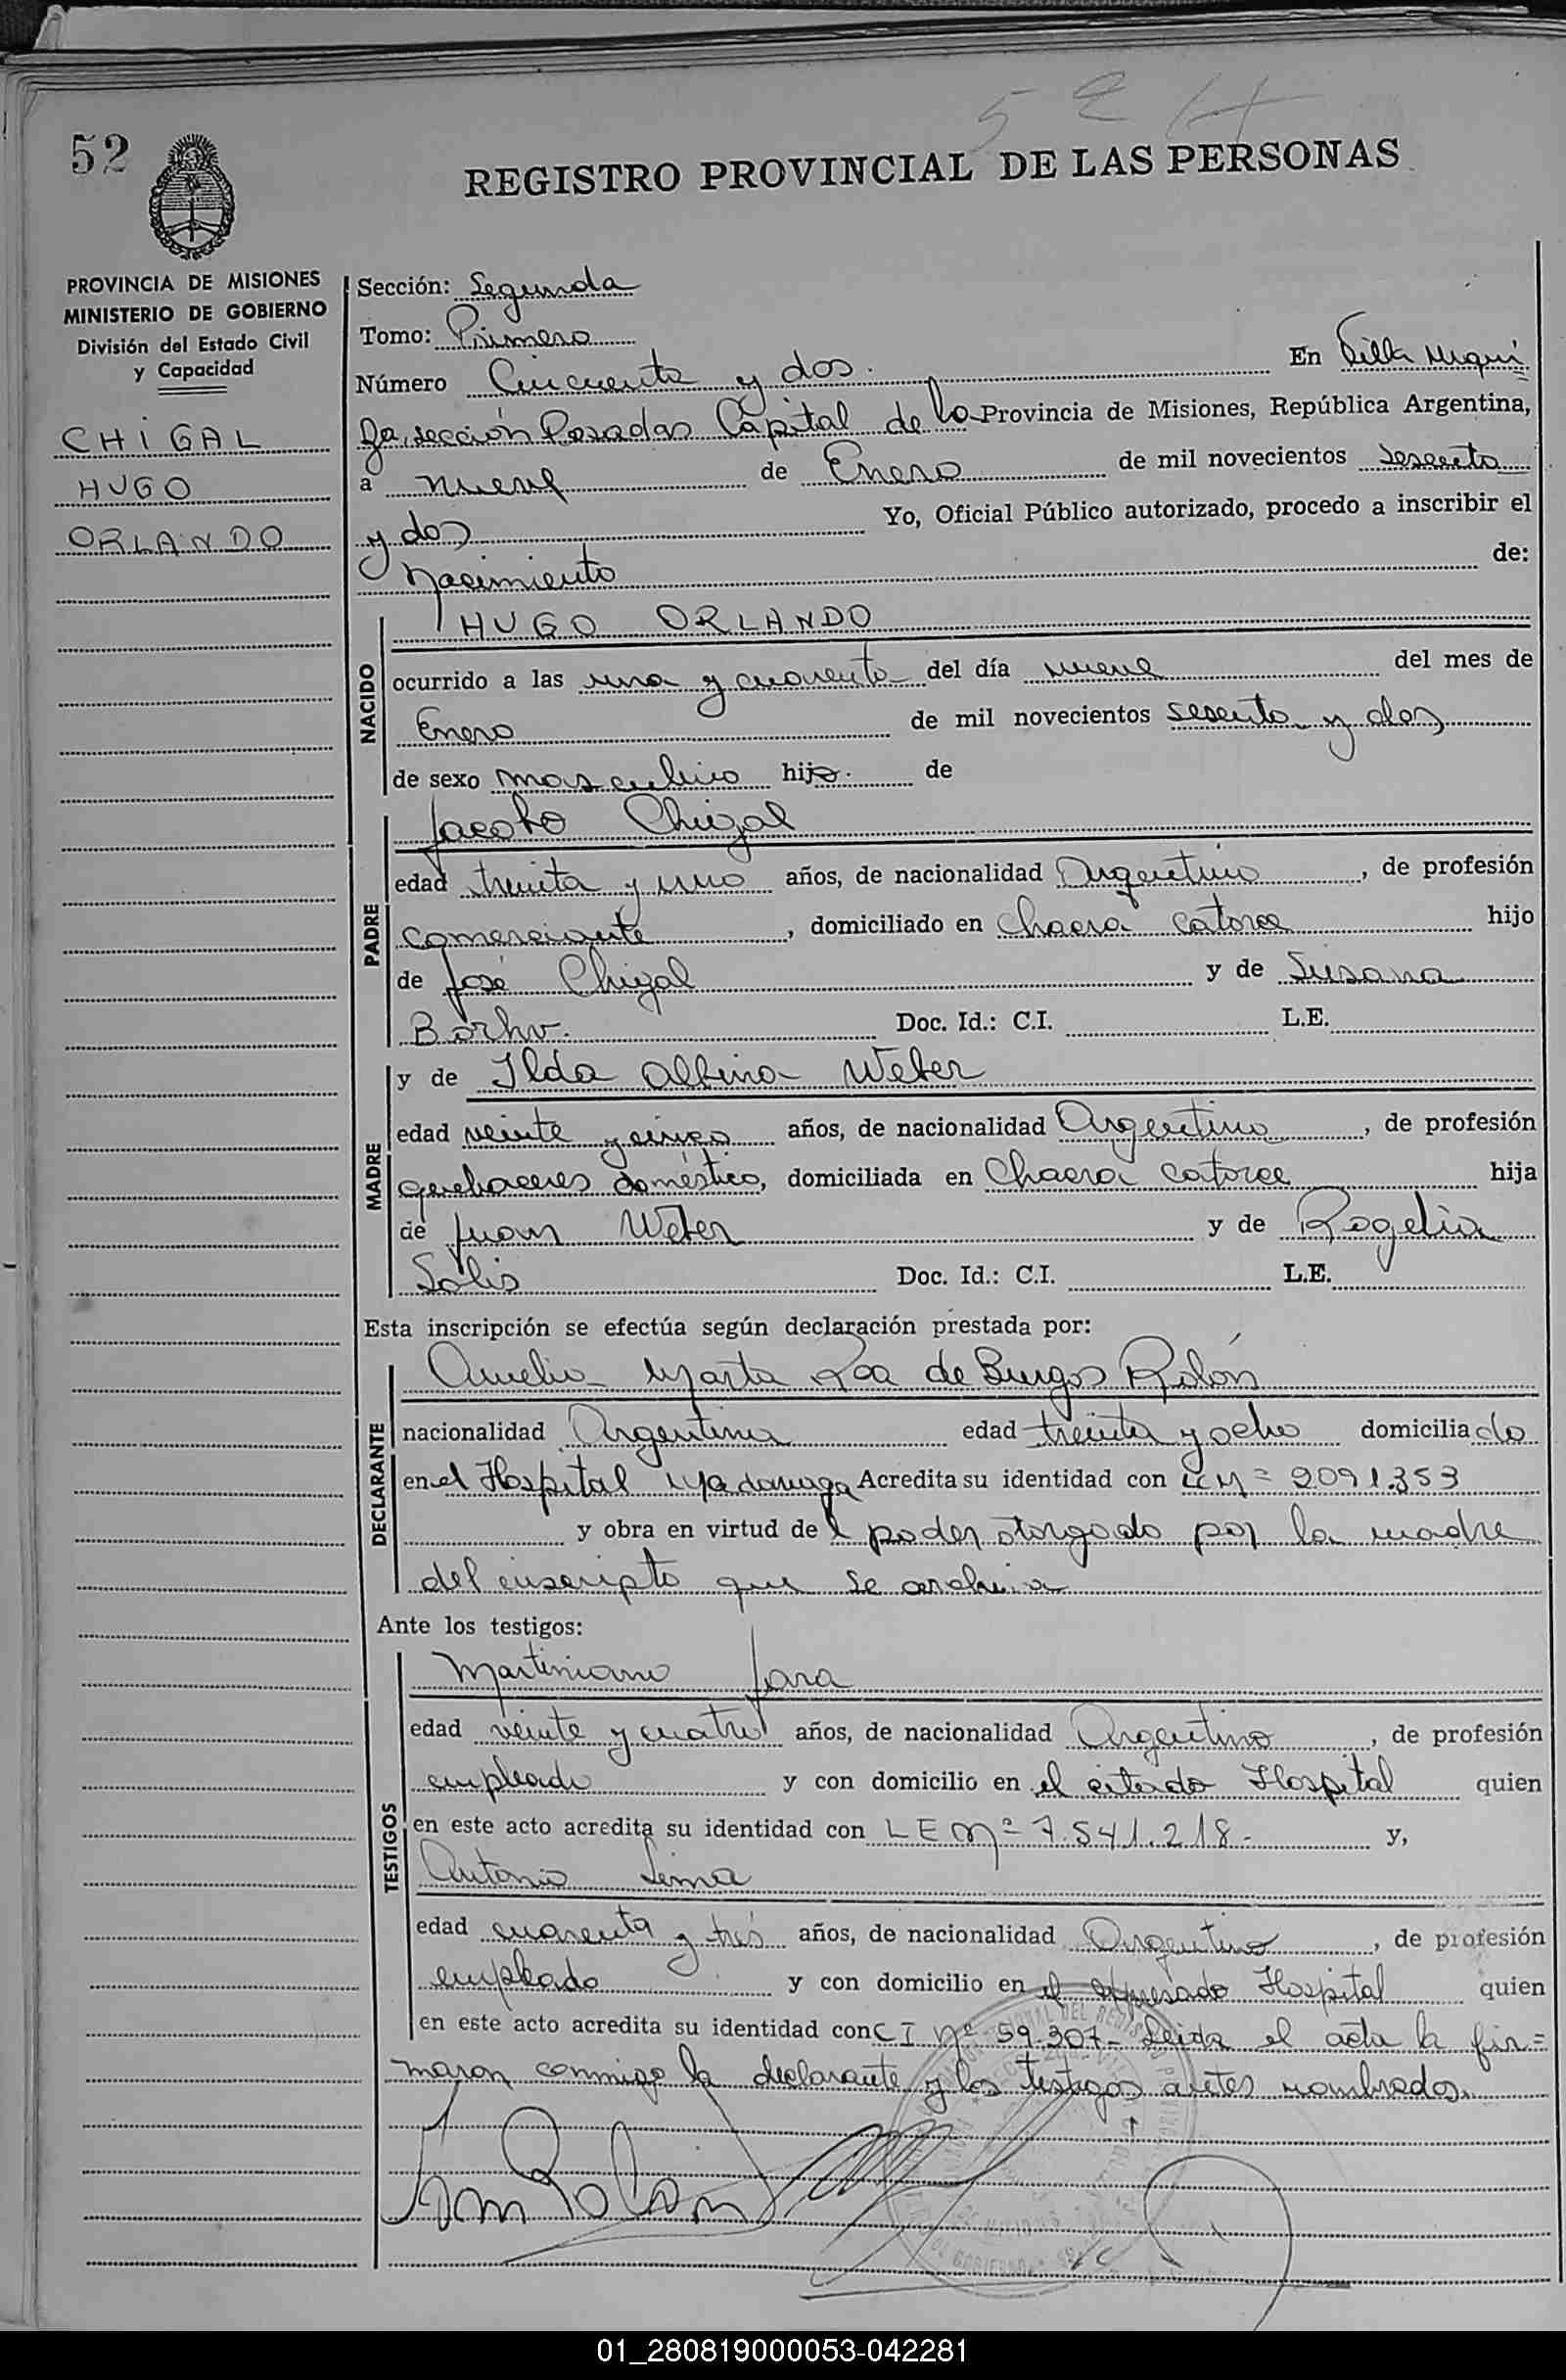 52
REGISTRO PROVINCIAL DE LAS PERSONAS
PROVINCIA DE MISIONES
MINISTERIO DE GOBIERNO
División del Estado Civil
y Capacidad
CHIGAL
HUGO
ORLANDO
Sección: Segunda
Tomo: Primero
Número Cincuenta y dos. En Villa Urqui
za, sección Posadas Capital de la Provincia de Misiones, República Argentina,
a nueve de Enero de mil novecientos sesenta
y dos Yo, Oficial Público autorizado, procedo a inscribir el
Nacimiento de:
NACIDO
HUGO ORLANDO
ocurrido a las una y cuarenta del día nueve del mes de
Enero de mil novecientos sesenta y dos
de sexo masculino hijo. de
PADRE
Jacobo Chigal
edad treinta y uno años, de nacionalidad Argentino, de profesión
comerciante, domiciliado en Chacra catorce hijo
de José Chigal y de Susana
Doc. Id.: C.I. L.E.
MADRE
y de Ilda Albina Weber
edad veinte y cinco años, de nacionalidad Argentina, de profesión
quehaceres doméstico, domiciliada en Chacra catorce hija
de Juan Weber y de Rogelia
Solis Doc. Id.: C.I. L.E.
Esta inscripción se efectúa según declaración prestada por:
DECLARANTE
Amelia Marta Roa de Burgos Rolón
nacionalidad Argentina edad treinta y ocho domiciliado
en el Hospital Madariaga Acredita su identidad con 2091.353
y obra en virtud del poder otorgado por la madre
del inscripto que se archiva
Ante los testigos:
TESTIGOS
Martiniano Jara
edad veinte y cuatro años, de nacionalidad Argentino, de profesión
empleado y con domicilio en el citado Hospital quien
en este acto acredita su identidad con LE Nº 7.541.218.- y,
Antonio Lima
edad cuarenta y tres años, de nacionalidad Argentino, de profesión
empleado y con domicilio en el expresado Hospital quien
en este acto acredita su identidad con C I Nº 59.307- Leida el acta la fir=
maron conmigo la declarante y los testigos antes nombrados.
01_280819000053-042281